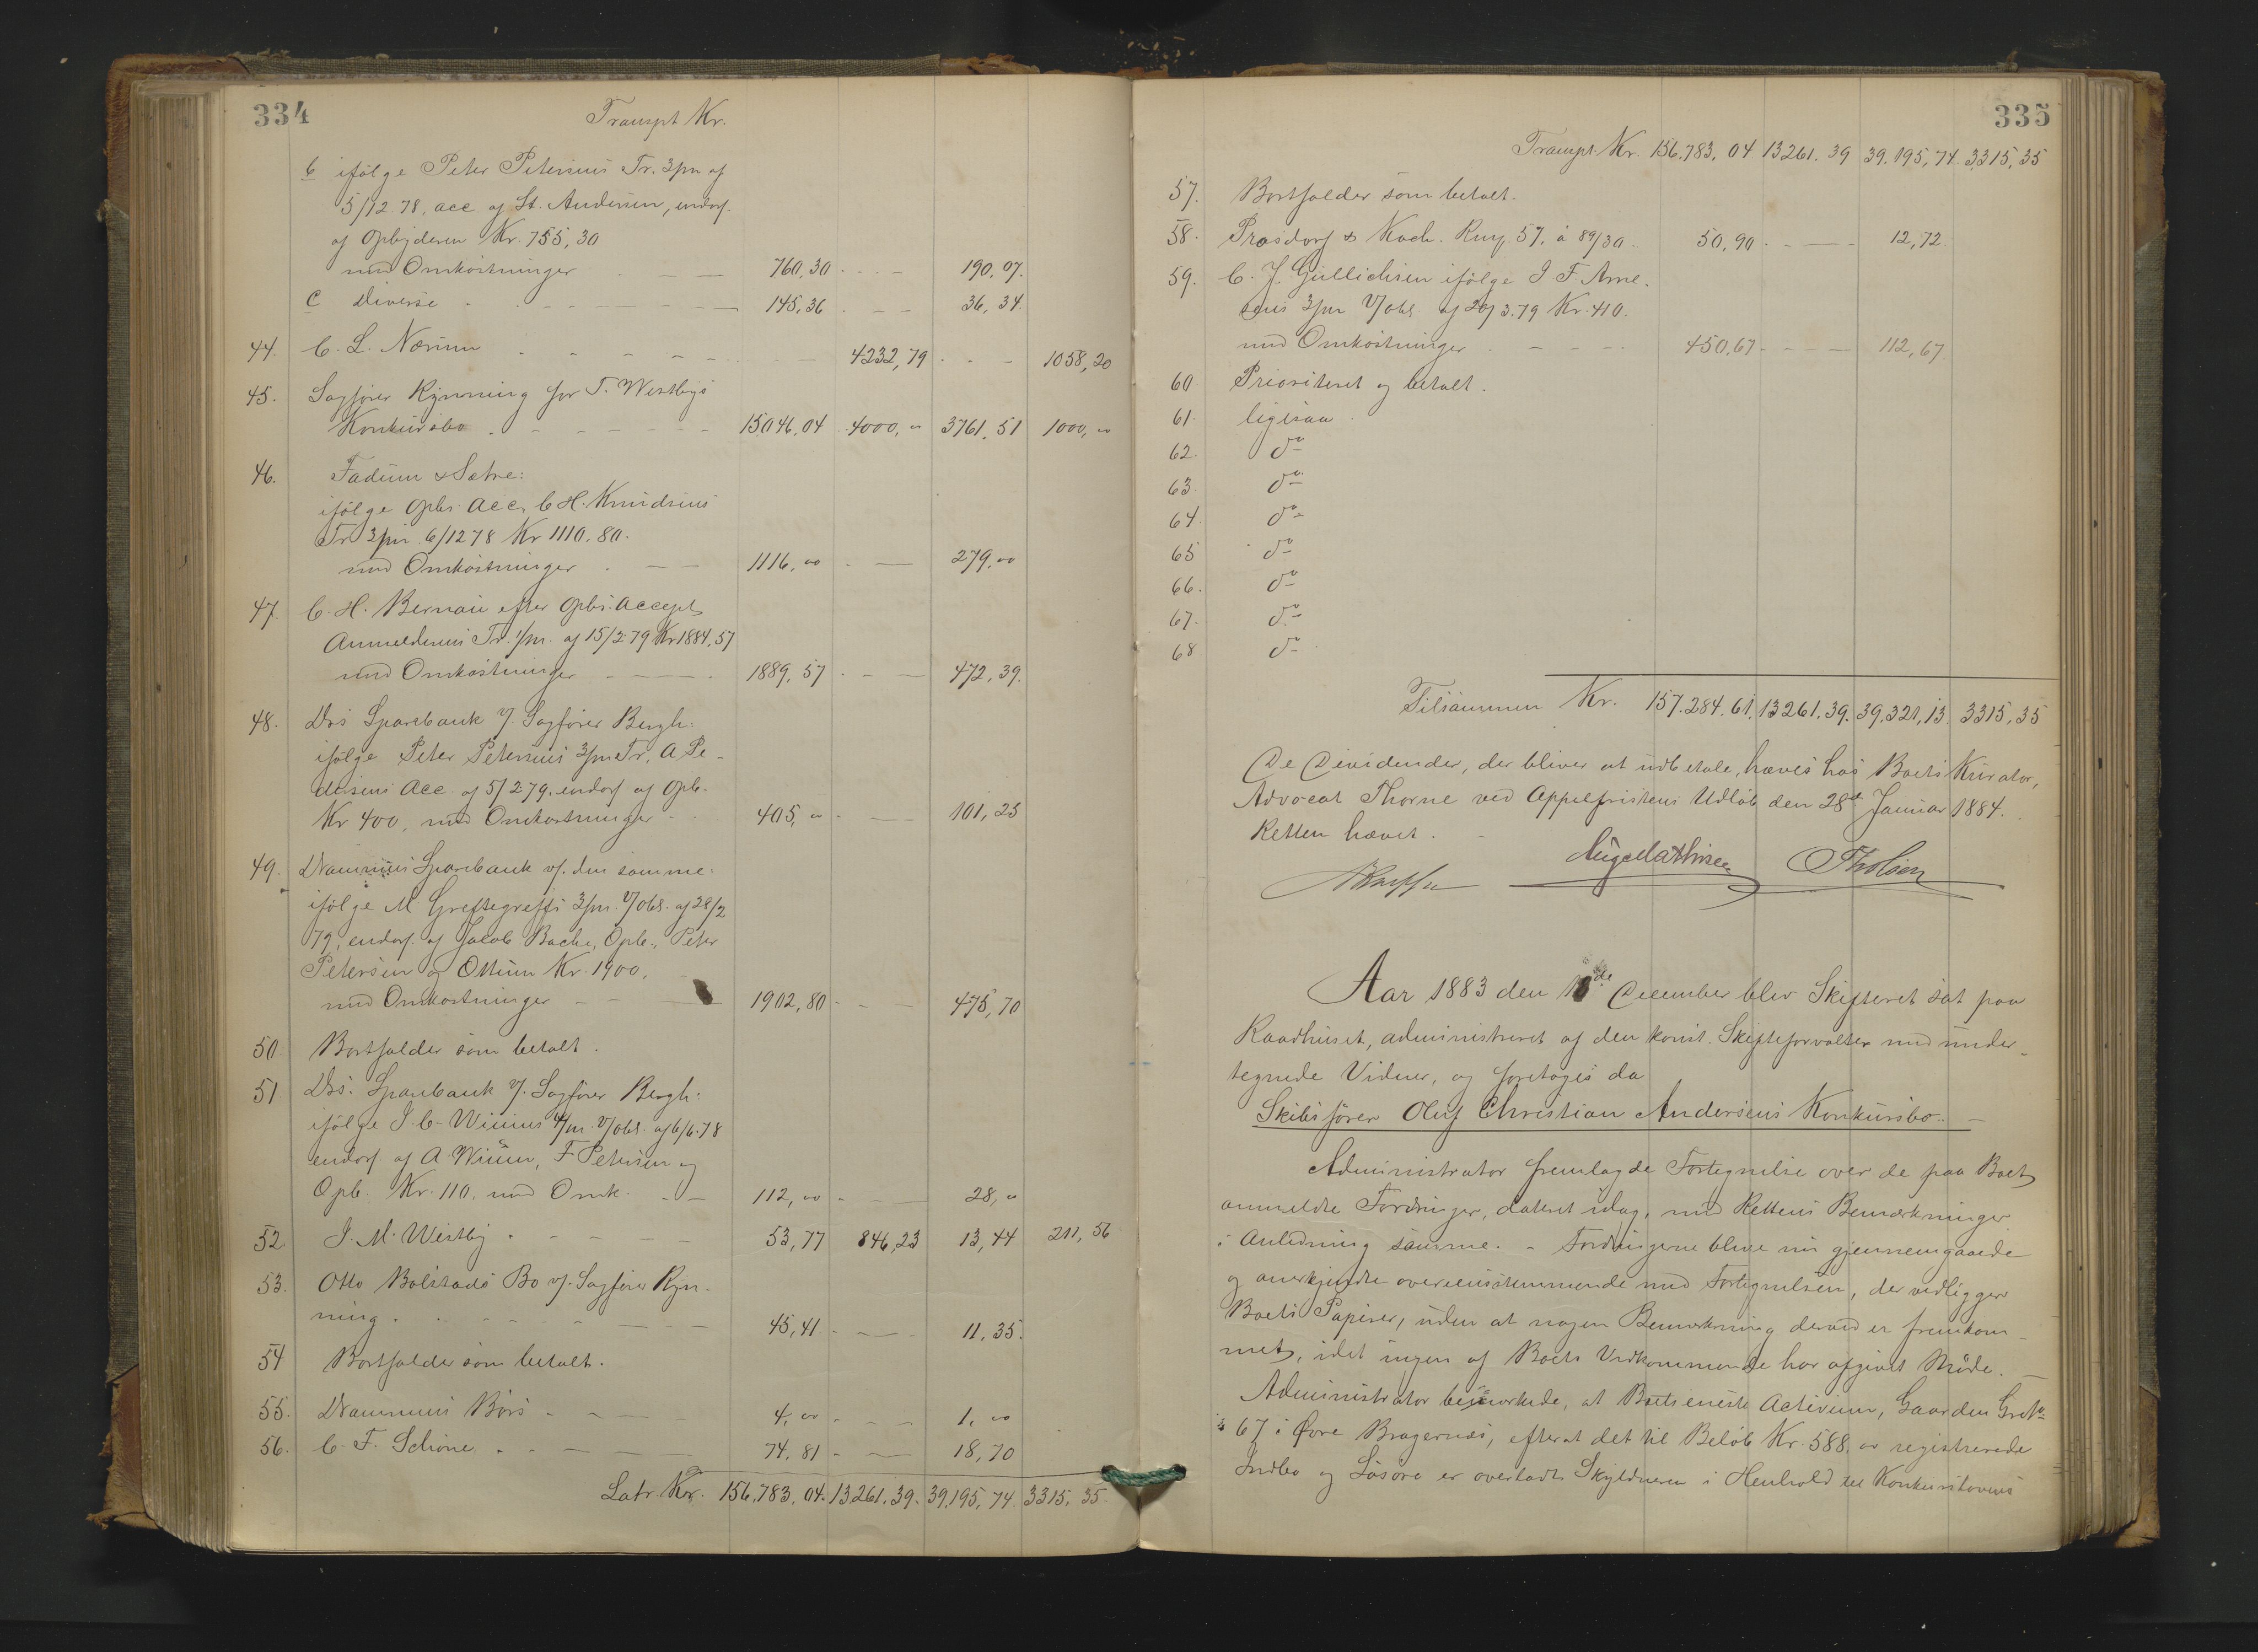 334
Transpt Kr.
b ifølge Peter Petersens Tr. 3/m af
5/12.78, acc. af St. Andersen, endos.
af Opbyderen Kr. 755,30
med Omkostninger - - - 760,30 - - - 190,07.
c Diverse - - - 145,36 - - - 36,34.
44. C. L. Nørum - - - 4232,79 - - - 1058,20
45. Sagfører Rynning for T. Westbys
Konkursbo - - - 15046,04 4000,00 3761,51 1000,00
46. Fadum & Sætre:
ifølge Opbs. Acc. C. H. Knudsens
Tr. 3/m 6/12 78 Kr 1110.80.
med Omkostninger - - - 1116,00 - - - 279,00
47. C. H. Bernau efter Opbs. Accept
Anmelderens Tr. 1/m. af 15/2.79 Kr 1884,57
med Omkostninger - - - 1889,57 - - - 472,39.
48. Drs Sparebank v/. Sagfører Bergh:
ifølge Peter Petersens 3/m Tr, A Pe-
dersens Acc. af 5/2 79. endos af Opb.
Kr 400, med Omkostninger - - 405,00 - - - 101,25
49. Drammens Sparebank v/. den samme:
ifølge M Greftegreffs 3/m. V/obl. af 28/2
79, endos. af Jacob Bache, Opb., Peter
Petersen og Ottum Kr. 1900.
med Omkostninger - - - 1902,80 - - - 475,70
50. Bortfalder som betalt.
51. Drs. Sparebank v/. Sagfører Bergh:
ifølge J. C. Wiums 4/m. V/obl. af 6/6.78
endos. af A. Wium, F Petersen og
Opb. Kr. 110. med Omk. - - 112,00 - - - 28,00
52. J. M. Westby - - - 53,77 846,23 13,44 211,56
53. Otto Bolstads Bo v/. Sagfører Ryn-
ning - - - 45,41 - - - 11,35.
54 Bortfalder som betalt.
55. Drammens Børs - - - 4,00 - - - 1,00
56. C. F. Schiøne - - - 74,81 - - - 18,70
Latr. Kr. 156,783,04. 13261,39. 39,195,74. 3315,35.
335
Transpt. Kr. 156,783,04 13261.39 39.195,74. 3315,35
57. Bortfalder som betalt.
58. Prasdorf & Koch. Rmk. 57. à 89/30 - 50,90 - - - 12,72.
59. C. J. Gullichsen ifølge J F. Arne-
sens 3/m V/obl. af 20/3.79 Kr. 410.
med Omkostninger - - - 450,67 - - - 112,67
60 Prioriteret og betalt.
61. ligesaa.
62. do
63. do
64. do
65 do
66. do
67. do
68 do
Tilsammen Kr. 157.284.61. 13261.39. 39,321,13. 3315,35
De Dividender, der bliver at udbetale, hæves hos Boets Kurator,
Advocat Thorne ved Appelfristens Udløb den 28de Januar 1884.
Retten hævet.
Aug Mathisen Th Olsen
Aar 1883 den de December blev Skifteret sat paa
Raadhuset, administreret af den konst. Skifteforvalter med under-
tegnede Vidner, og foretoges da
Skibsfører Oluf Christian Andersens Konkursbo. -
Administrator fremlagde Fortegnelse over de paa Boet
anmeldte Fordringer, dateret idag, med Rettens Bemærkninger
i Anledning samme. - Fordringerne bleve nu gjennemgaaede
og anerkjendte overensstemmende med Fortegnelsen, der vedligger
Boets Papirer, uden at nogen Bemærkning derved er fremkom-
met, idet ingen af Boets Vedkommende har afgivet Møde. -
Administrator bemærkede, at Boets eneste Activum, Gaarden Gr No
67 i Øvre Bragernæs, efterat det til Beløb Kr. 588,00 registrerede
Indbo og Løsøre er overladt Skyldneren i Henhold til Konkurslovens